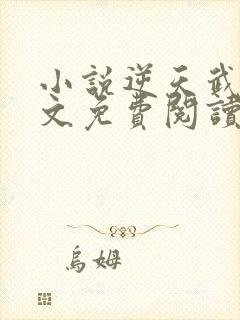 小說逆天武
文免費閱讀
烏姆